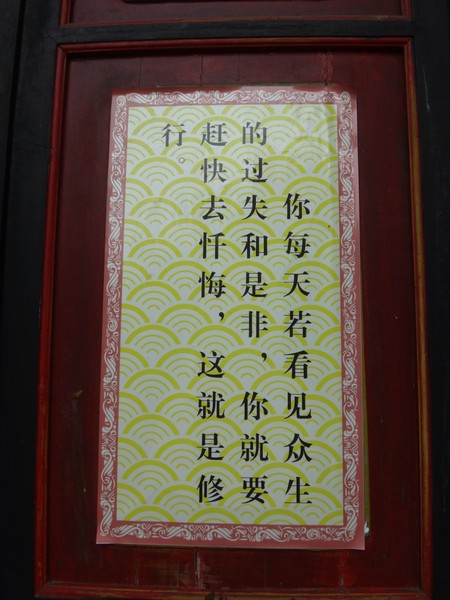 你每天若看见众生
的过失和是非，你就要
赶快去忏悔，这就是修
行。